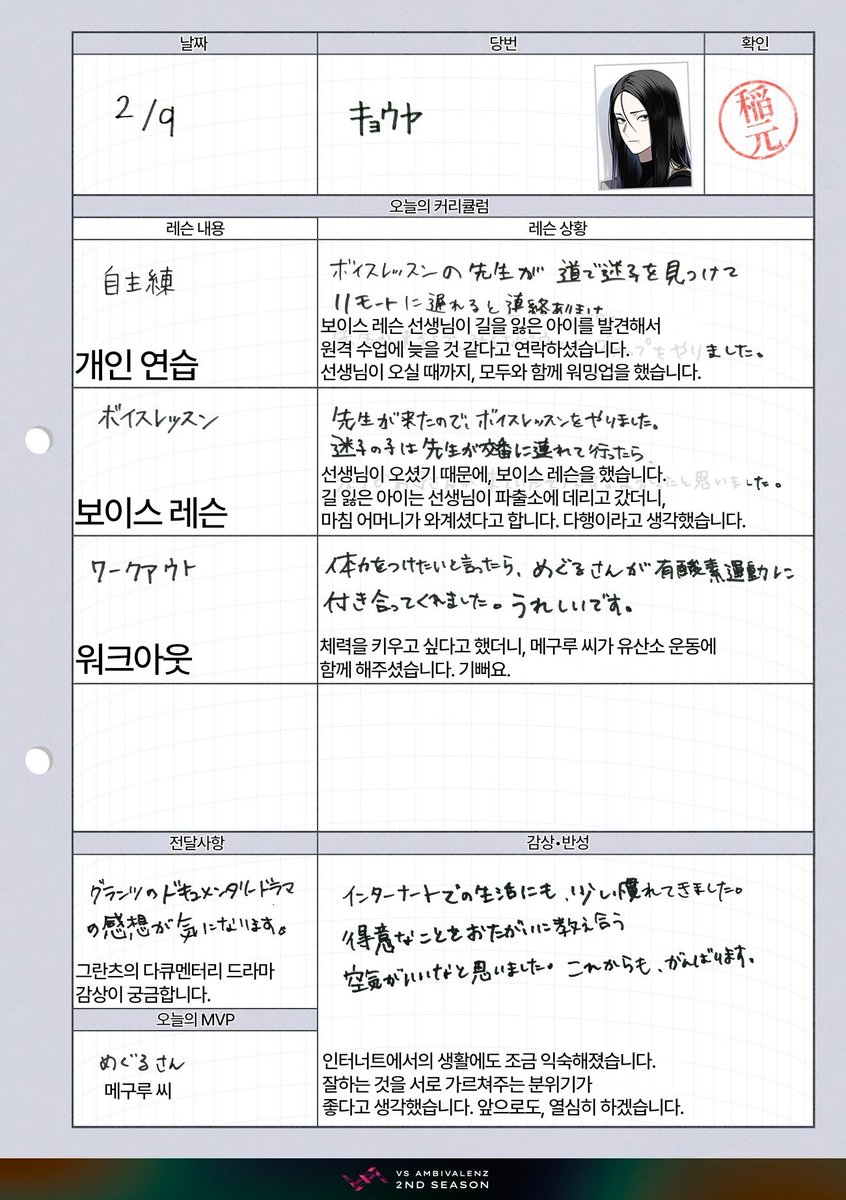 날짜
당번
확인
2/9
キョウヤ
稲元
오늘의 커리큘럼
레슨 내용
레슨 상황
自主練
ボイスレッスンの先生が 道で迷子を見つけて
リモートに遅れると連絡あり
보이스 레슨 선생님이 길을 잃은 아이를 발견해서
원격 수업에 늦을 것 같다고 연락하셨습니다.
プをやりました。
개인 연습
선생님이 오실 때까지, 모두와 함께 워밍업을 했습니다.
ボイスレッスン
先生が来たので、ボイスレッスンをやりました。
迷子の子は先生が交番に連れて行ったら
선생님이 오셨기 때문에, 보이스 레슨을 했습니다.
と思いました。
보이스 레슨
길 잃은 아이는 선생님이 파출소에 데리고 갔더니,
마침 어머니가 와계셨다고 합니다. 다행이라고 생각했습니다.
ワークアウト
体力をつけたいと言ったら、めぐるさんが有酸素運動に
付き合ってくれました。うれしいです。
워크아웃
체력을 키우고 싶다고 했더니, 메구루 씨가 유산소 운동에
함께 해주셨습니다. 기뻐요.
전달사항
감상•반성
グランツのドキュメンタリードラマ
の感想が気になります。
그란츠의 다큐멘터리 드라마
감상이 궁금합니다.
インターナートでの生活にも、少し慣れてきました。
得意なことをおたがいに教え合う
空気がいいなと思いました。これからも、がんばります。
오늘의 MVP
めぐるさん
메구루 씨
인터너트에서의 생활에도 조금 익숙해졌습니다.
잘하는 것을 서로 가르쳐주는 분위기가
좋다고 생각했습니다. 앞으로도, 열심히 하겠습니다.
VS AMBIVALENZ
2ND SEASON